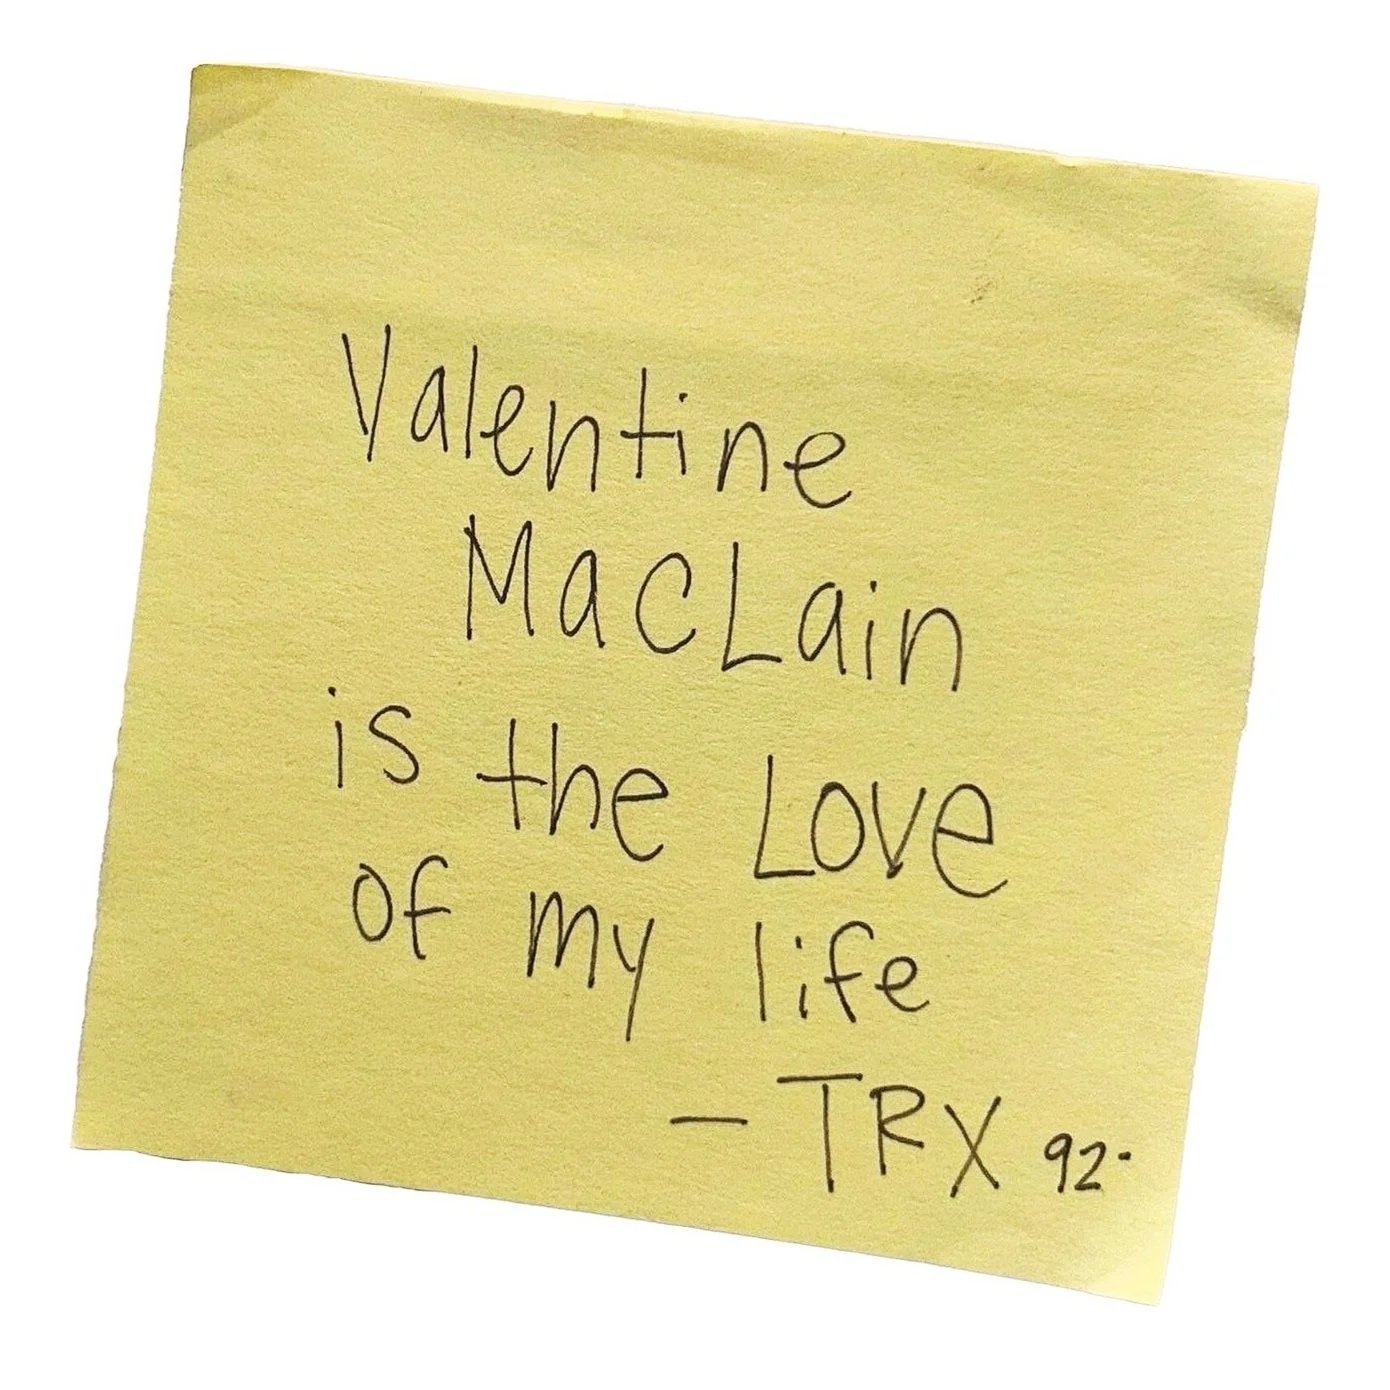 Valentine
MacLain
is the Love
of my life
- TRX 92.